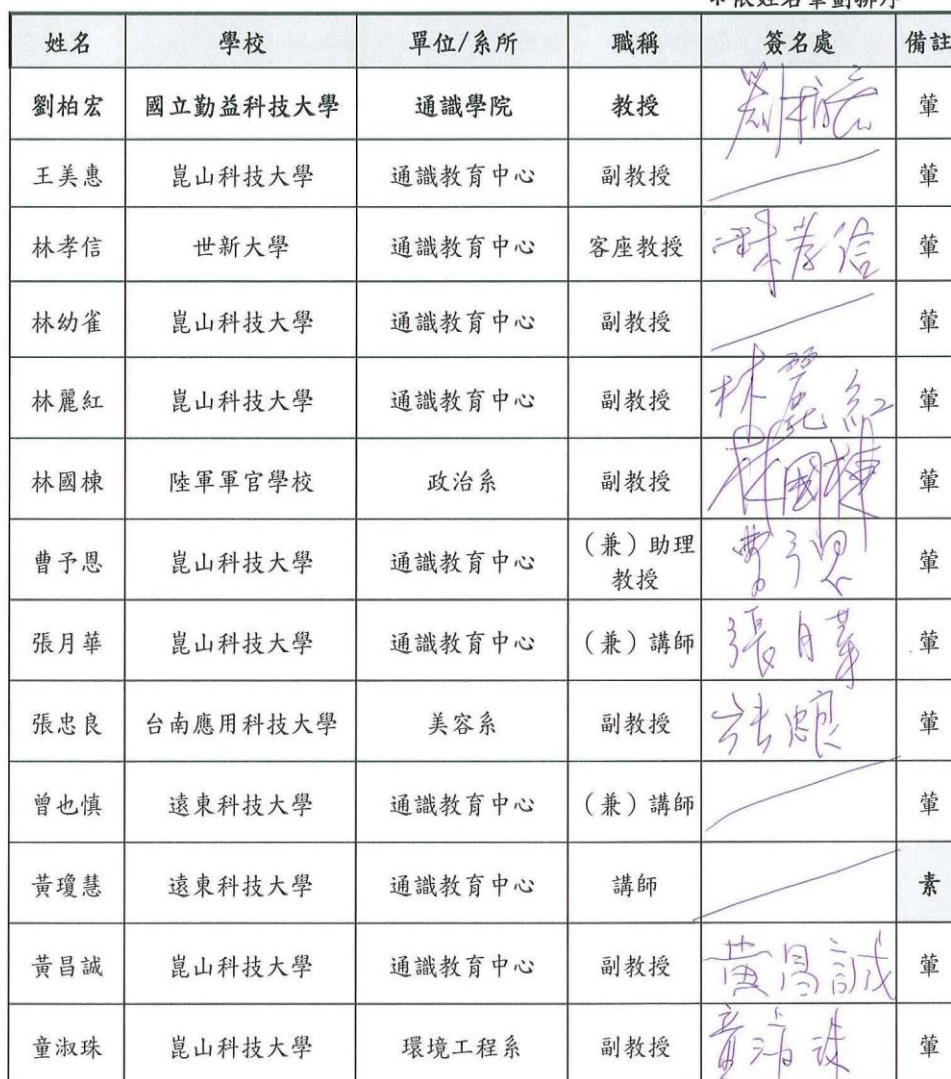 ※依姓名筆劃排序
姓名 學校 單位/系所 職稱 簽名處 備註
劉柏宏 國立勤益科技大學 通識學院 教授 劉柏宏 葷
王美惠 崑山科技大學 通識教育中心 副教授 葷
林孝信 世新大學 通識教育中心 客座教授 林孝信 葷
林幼雀 崑山科技大學 通識教育中心 副教授 葷
林麗紅 崑山科技大學 通識教育中心 副教授 林麗紅 葷
林國棟 陸軍軍官學校 政治系 副教授 林國棟 葷
曹予恩 崑山科技大學 通識教育中心 （兼）助理教授 曹予恩 葷
張月華 崑山科技大學 通識教育中心 （兼）講師 張月華 葷
張忠良 台南應用科技大學 美容系 副教授 張忠良 葷
曾也慎 遠東科技大學 通識教育中心 （兼）講師 葷
黃瓊慧 遠東科技大學 通識教育中心 講師 素
黃昌誠 崑山科技大學 通識教育中心 副教授 黃昌誠 葷
童淑珠 崑山科技大學 環境工程系 副教授 童淑珠 葷